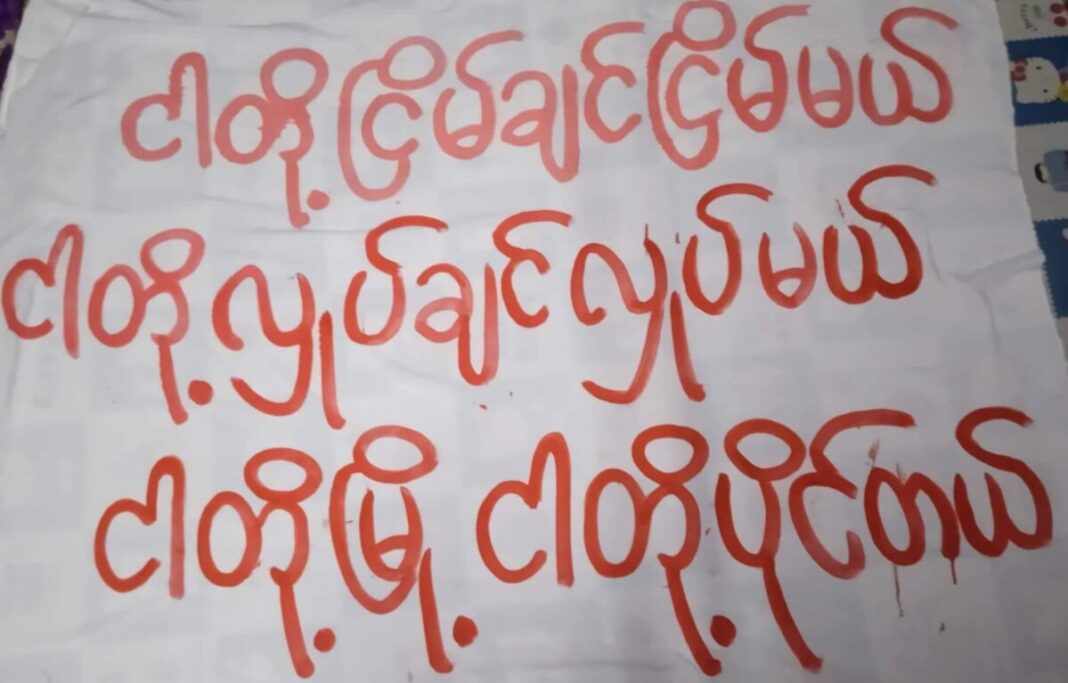 ငါတို့ငြိမ်ချင်ငြိမ်မယ်
ငါတို့လှုပ်ချင်လှုပ်မယ်
ငါတို့မြို့ ငါတို့ပိုင်တယ်